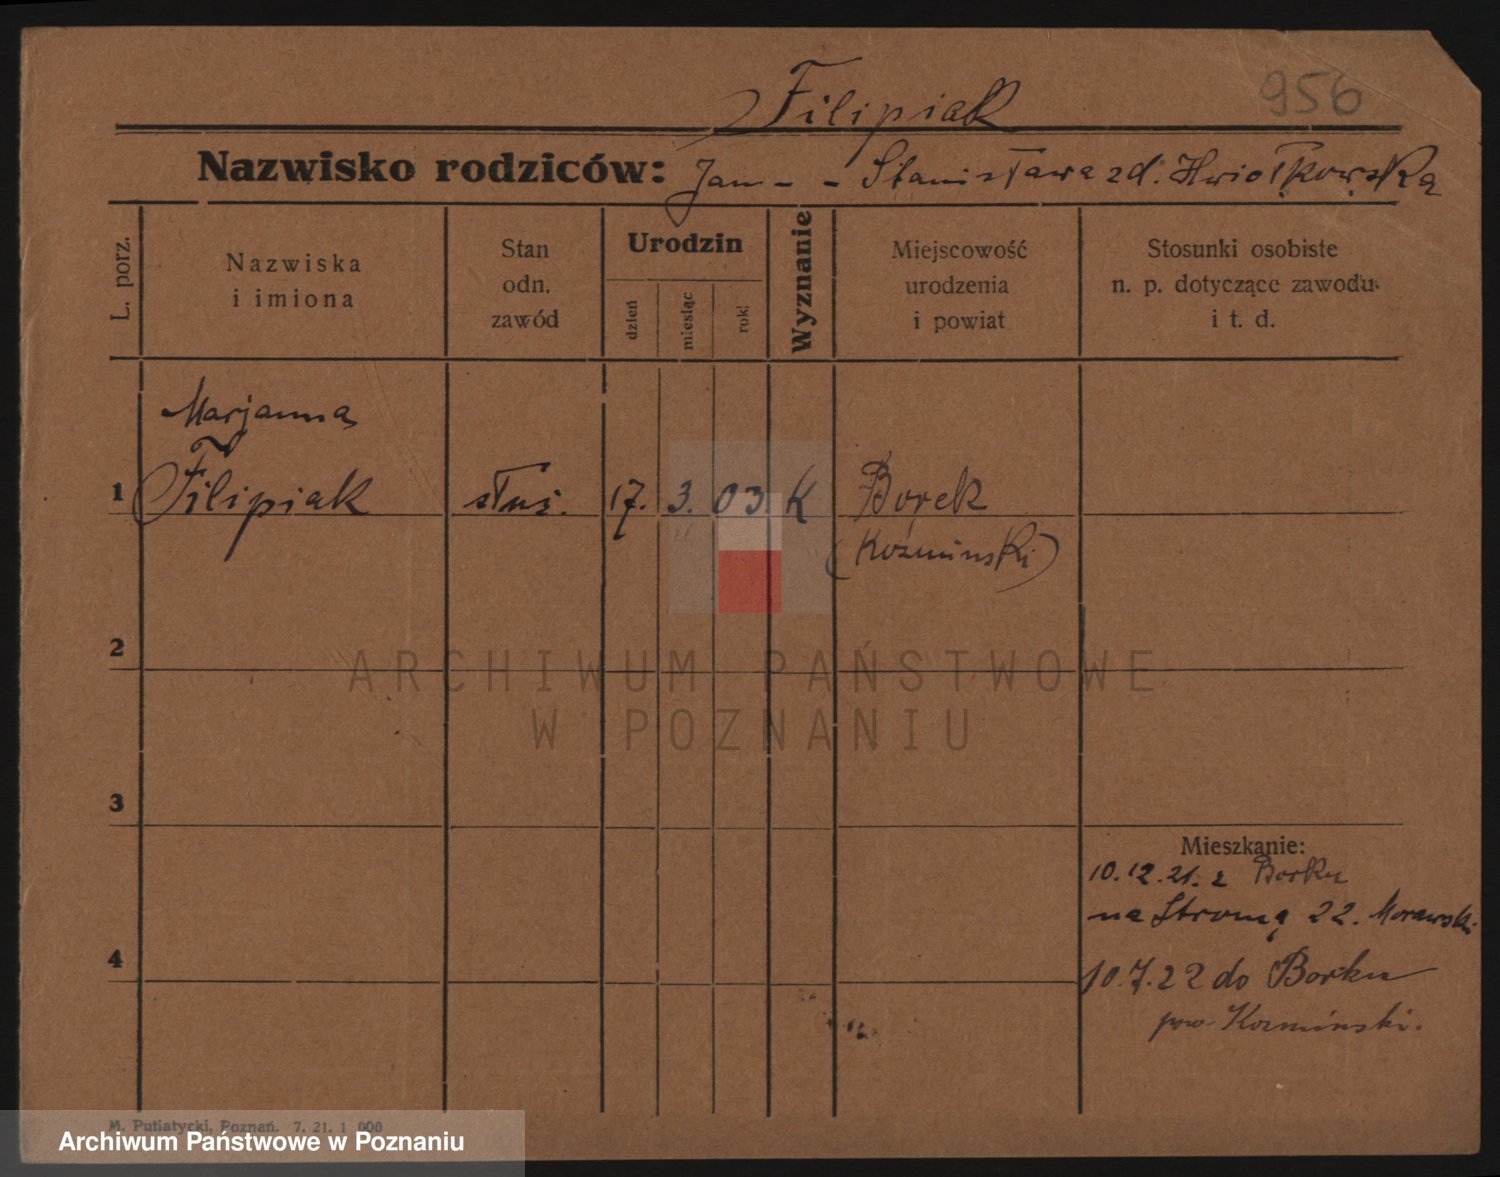 Filipiak 956
Nazwisko rodziców: Jan - - Stanisława zd.
L. porz.
Nazwiska
i imiona
Stan
odn.
zawód
Urodzin
dzień
miesiąc
rok
Wyznanie
Miejscowość
urodzenia
i powiat
Stosunki osobiste
n. p. dotyczące zawodu
i t. d.
Marjanna
1 Filipiak służ. 17. 3. 03 K Borek
(Kozminski)
2
ARCHIWUM PAŃSTWOWE
W POZNANIU
3
Mieszkanie:
10.12.21. z Borku
na Stromą 22. Morawski
4 10.7.22 do Borku
pow. Kozminski.
M. Putiatycki, Poznań. 7. 21. 1 000
Archiwum Państwowe w Poznaniu